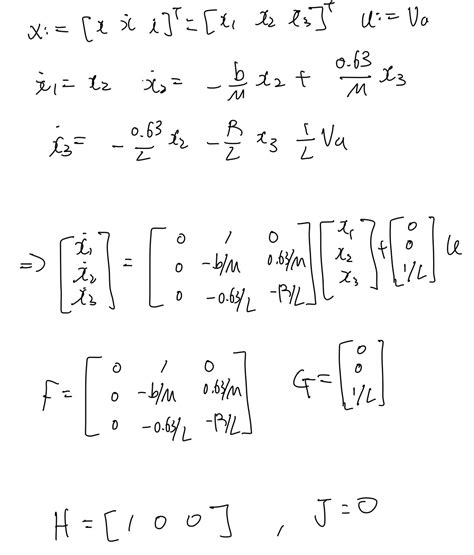 x := [x ẋ i]ᵀ = [x₁ x₂ x₃]ᵀ u := Va
ẋ₁ = x₂ ẋ₂ = -b/M x₂ + 0.63/M x₃
ẋ₃ = -0.63/L x₂ - R/L x₃ 1/L Va
⇒ [ẋ₁ ẋ₂ ẋ₃] = [0 1 0; 0 -b/M 0.63/M; 0 -0.63/L -R/L] [x₁ x₂ x₃] + [0 0 1/L] u
F = [0 1 0; 0 -b/M 0.63/M; 0 -0.63/L -R/L] G = [0 0 1/L]
H = [1 0 0] , J = 0